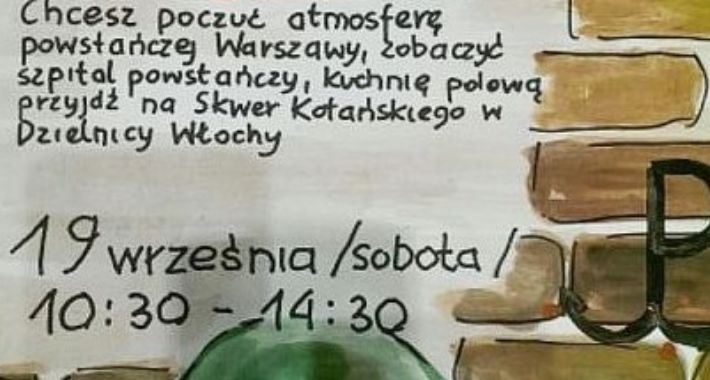 Chcesz poczuć atmosferę
powstańczej Warszawy, zobaczyć
szpital powstańczy, kuchnię polową
przyjdź na Skwer Kotańskiego w
Dzielnicy Włochy
19 września /sobota/
10:30 - 14:30